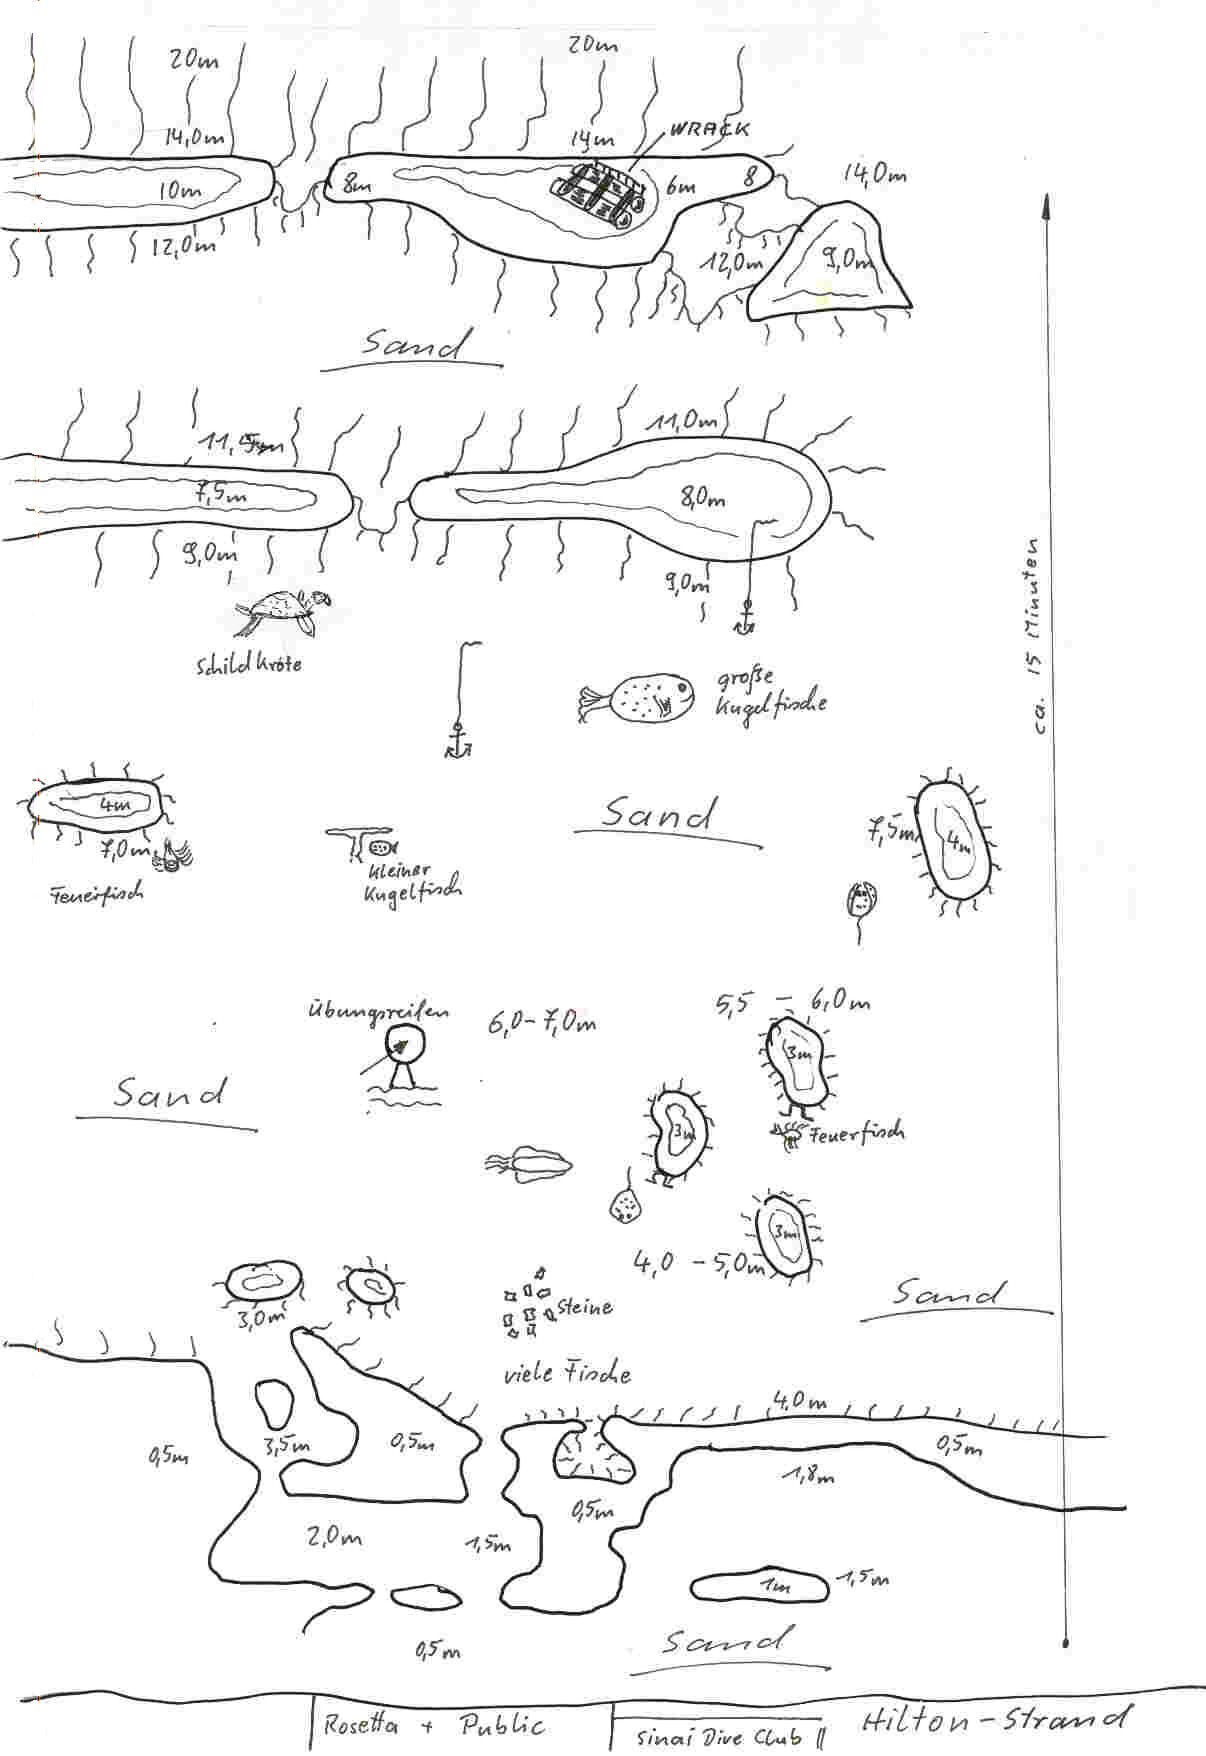 20m
20m
14,0m
14m
WRACK
10m
8m
6m
8
14,0m
12,0m
12,0m
9,0m
Sand
11,0m
7,5m
8,0m
9,0m
9,0m
Schildkröte
große
Kugelfische
ca. 15 Minuten
4m
7,0m
Feuerfisch
kleiner
Kugelfisch
Sand
7,5m
4m
Übungsreifen
6,0-7,0m
5,5 - 6,0m
3m
Sand
3m
Feuerfisch
3m
4,0 - 5,0m
3,0m
Steine
Sand
viele Fische
4,0m
0,5m
3,5m
0,5m
0,5m
1,8m
0,5m
2,0m
1,5m
1m
1,5m
0,5m
Sand
Rosetta + Public
Sinai Dive Club II
Hilton-Strand